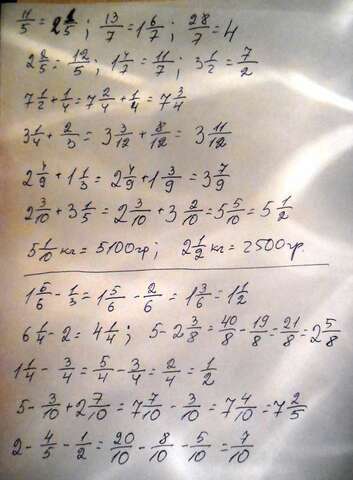 11/5 = 2 1/5; 13/7 = 1 6/7; 28/7 = 4
2 2/5 = 12/5; 1 4/7 = 11/7; 3 1/2 = 7/2
7 1/2 + 1/4 = 7 2/4 + 1/4 = 7 3/4
3 1/4 + 2/3 = 3 3/12 + 8/12 = 3 11/12
2 4/9 + 1 1/3 = 2 4/9 + 1 3/9 = 3 7/9
2 3/10 + 3 1/5 = 2 3/10 + 3 2/10 = 5 5/10 = 5 1/2
5 1/10 кг = 5100гр; 2 1/2 кг = 2500гр.
1 5/6 - 1/3 = 1 5/6 - 2/6 = 1 3/6 = 1 1/2
6 1/4 - 2 = 4 1/4; 5 - 2 3/8 = 40/8 - 19/8 = 21/8 = 2 5/8
1 1/4 - 3/4 = 5/4 - 3/4 = 2/4 = 1/2
5 - 3/10 + 2 7/10 = 7 7/10 - 3/10 = 7 4/10 = 7 2/5
2 - 4/5 - 1/2 = 20/10 - 8/10 - 5/10 = 7/10